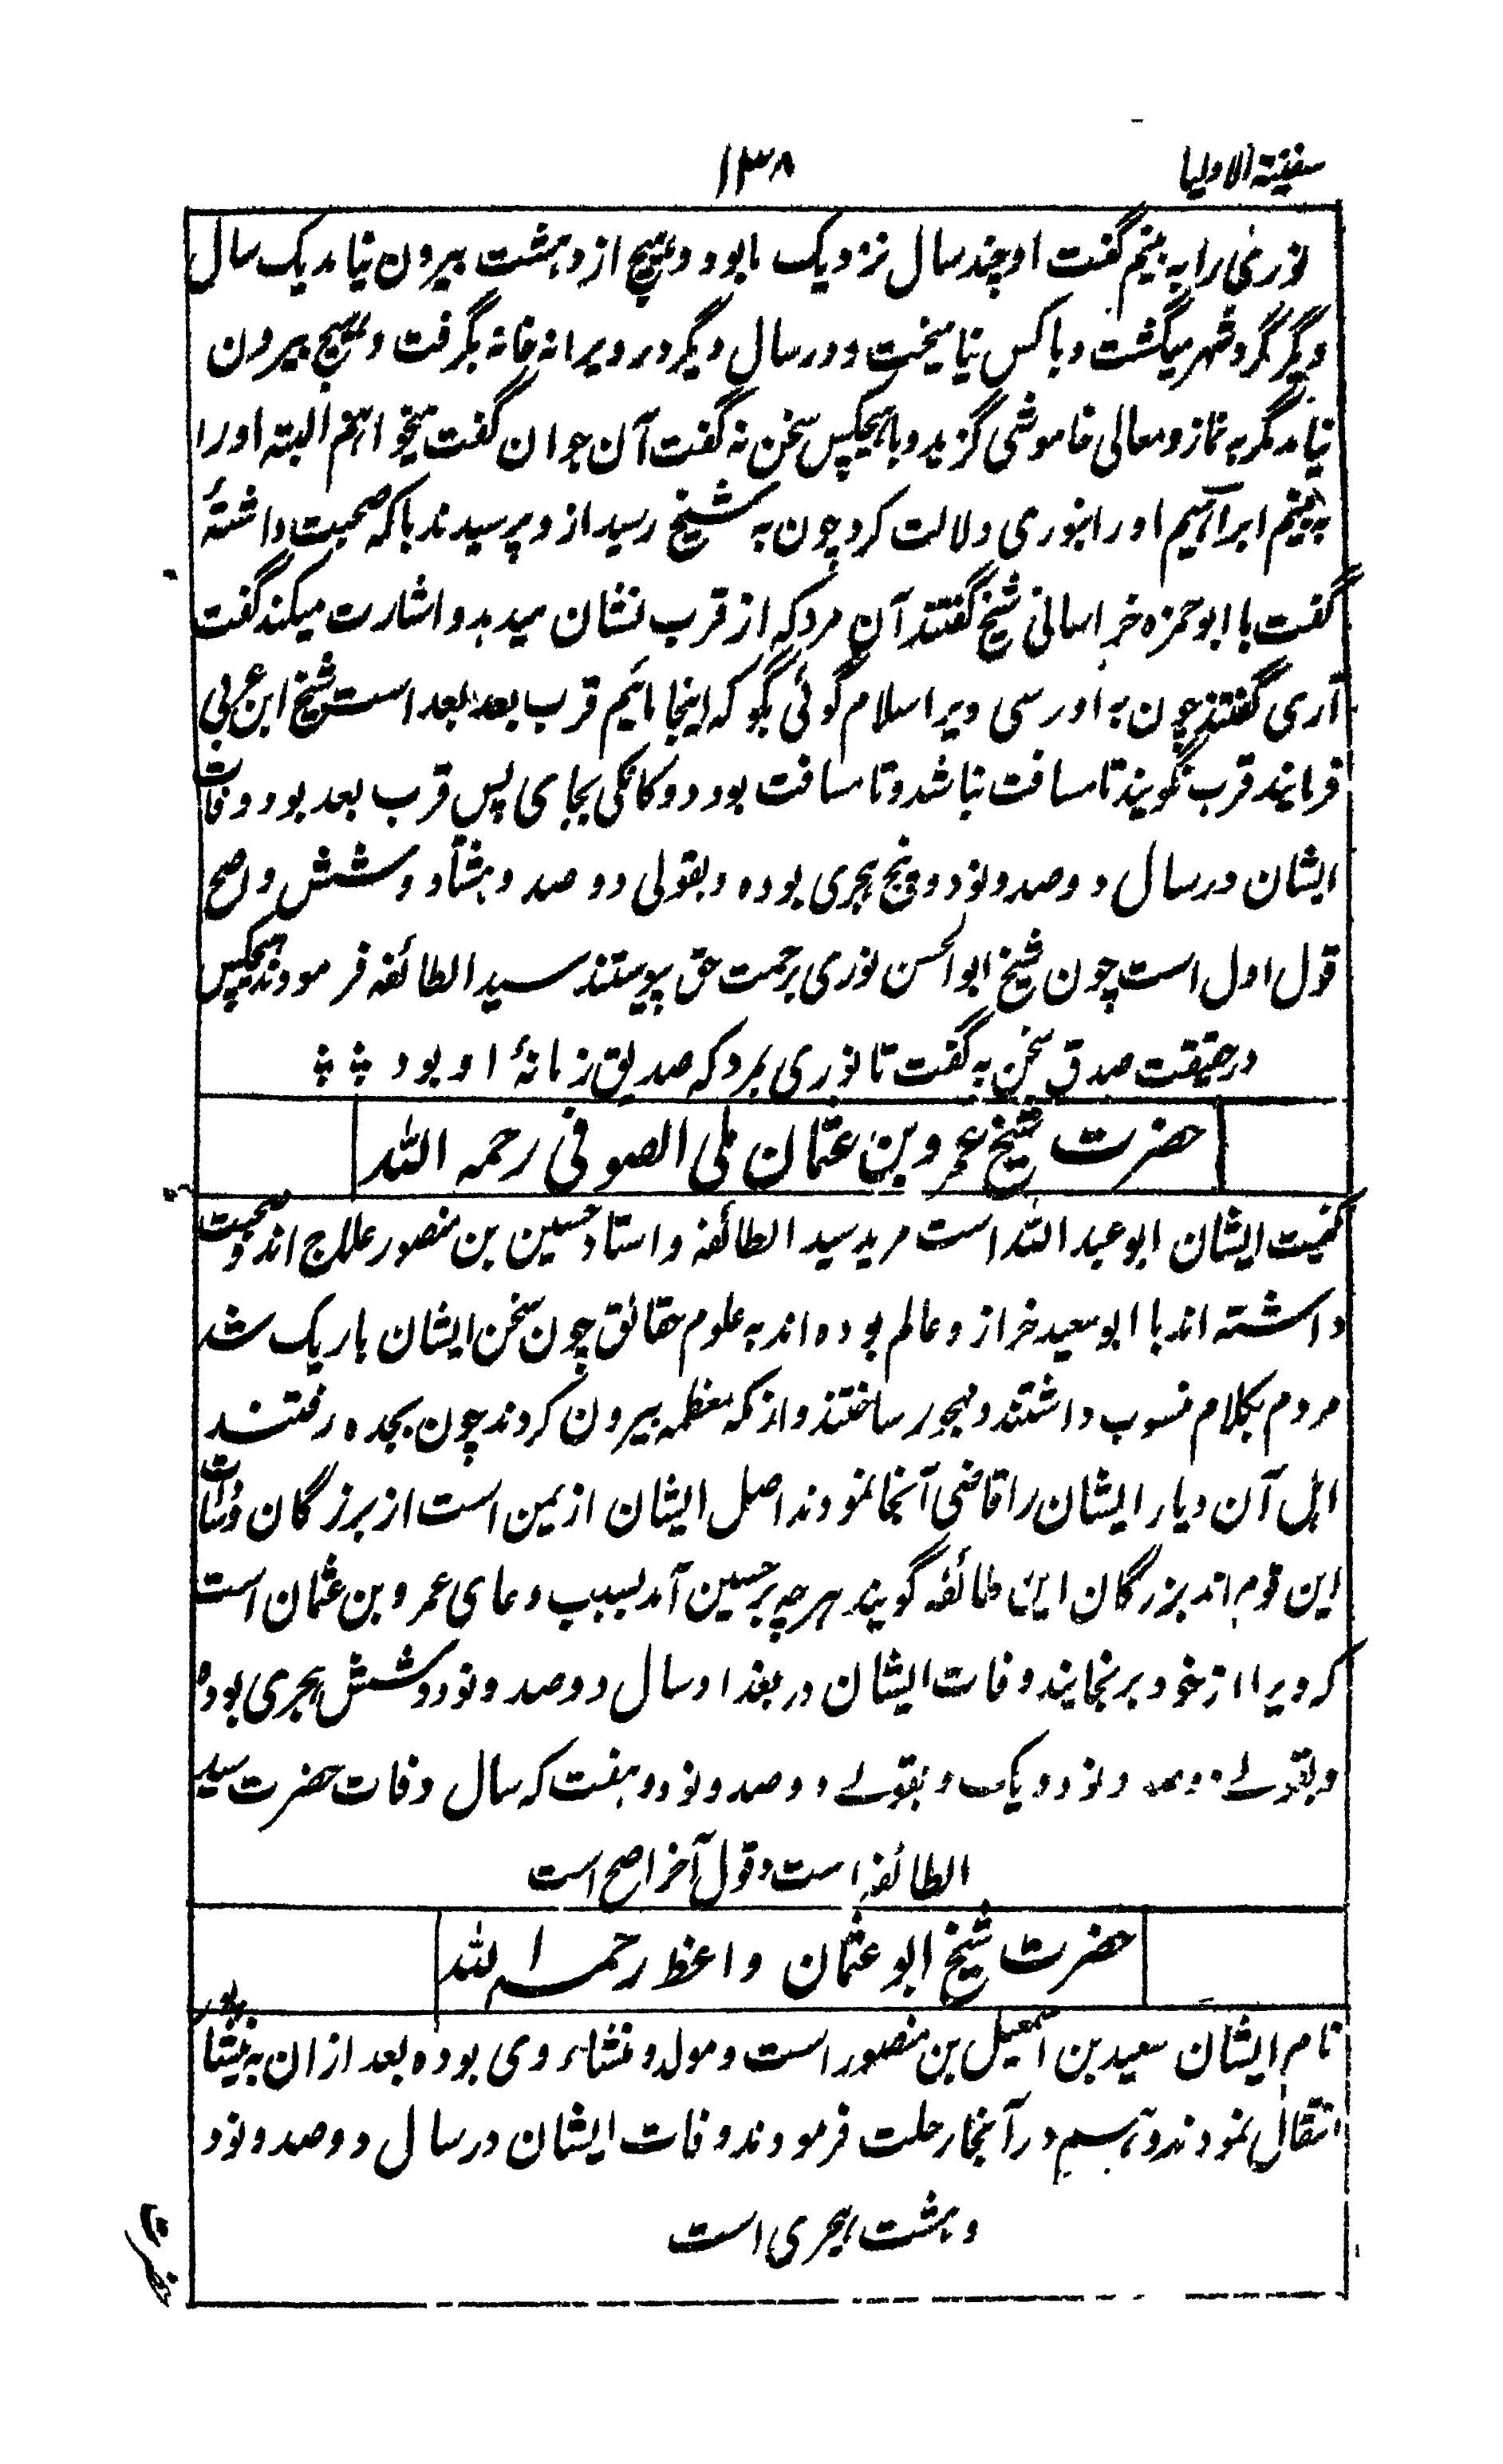 سفینة الاولیا ۱۳۸
نوری را به بینم گفت او چند سال نزدیک ما بود و هیچ از دهشت بیرون نیامد یک سال
دیگر گرد شهر میگشت و با کس نیامیخت و در سال دیگر در ویرانه خانه بگرفت و هیچ بیرون
نیامد مگر به نماز و سالی خاموشی گزید و با هیچکس سخن نه گفت آن جوان گفت میخواهم البته او را
به بینم ابراهیم او را بنوری دلالت کرد چون به شیخ رسید از و پرسیدند با که صحبت داشتهٔ
گفت با ابو حمزه خراسانی شیخ گفتند آن مرد که از قرب نشان میدهد و اشارت میکند گفت
آری گفتند چون به او رسی ویرا سلام گوئی بگو که اینجا مائیم قرب بعد بعد است شیخ ابن عربی
فرمایند قرب نگویند تا مسافت نباشد و تا مسافت بود دوگانگی بجای پس قرب بعد بود وفات
ایشان در سال دو صد و نود و پنج هجری بوده و بقولی دو صد و هشتاد و شش و اصح
قول اول است چون شیخ ابو الحسن نوری برحمت حق پیوستند سید الطائفه فرمودند هیچکس
در حقیقت صدق سخن نه گفت تا نوری بمرد که صدیق زمانهٔ او بود
حضرت شیخ عمرو بن عثمان ملی الصوفی رحمه الله
کنیت ایشان ابو عبد الله است مرید سید الطائفه و استاد حسین بن منصور حلاج اند و صحبت
داشته اند با ابو سعید خراز و عالم بوده اند به علوم حقائق چون سخن ایشان باریک شد
مردم بکلام منسوب داشتند و مهجور ساختند و از مکه معظمه بیرون کردند چون بجده رفتند
اهل آن دیار ایشان را قاضی آنجا نمودند اصل ایشان از یمن است از بزرگان و سادات
این قوم اند بزرگان این طائفه گویند هر چه بر حسین آمد بسبب دعای عمرو بن عثمان است
که ویرا از خود برنجانیدند وفات ایشان در بغداد سال دو صد و نود و شش هجری بوده
و بقولے دو صد و نود و یک و بقولے دو صد و نود و هفت که سال وفات حضرت سید
الطائفه است و قول آخر اصح است
حضرت شیخ ابو عثمان واعظ رحمه الله
نام ایشان سعید بن اسمعیل بن منصور است و مولد و منشاء وی بوده بعد ازان به نیشاپور
انتقال نمودند و در آنجا رحلت فرمودند وفات ایشان در سال دو صد و نود
و هشت هجری است